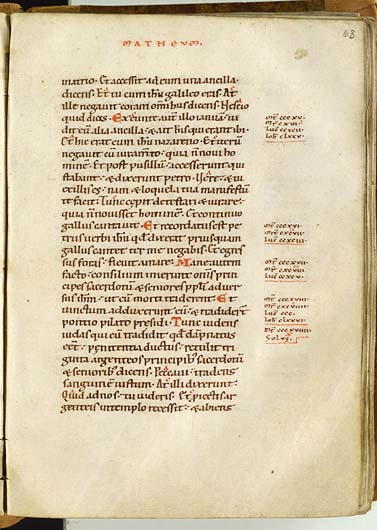 63
MATHEVM.
inatrio. Et accessit ad eum una ancilla
dicens. Et tu cum ihu galileo eras. At
ille negavit coram omibus dicens. Nescio
quid dicis. Exeunte autem illo ianuam. vi
dit eum alia ancilla. & ait his qui erant ibi.
Et hic erat cum ihu nazareno. Et iterum
negavit cum iuramto. quia n novi ho
mine. Et post pusillu accesserunt qui
stabant. & dixerunt petro. Vere & tu
ex illis es. nam & loquela tua manifestum
te facit. Tunc cepit detestari & iurare.
quia n novisset homine. Et continuo
gallus cantavit. Et recordatus est pe
trus verbi ihu qd dixerat. priusquam
gallus cantet ter me negabis. Et egres
sus foras. flevit amare. Mane autem
facto. consilium inierunt oms prin
cipes sacerdotu & seniores ppli adver
sus ihm. ut eum morti traderent. Et
vinctum adduxerunt eum. & tradider
pontio pilato presidi. Tunc videns
iudas qui eum tradidit qd dapnatus
eet. penitentia ductus. retulit tri
ginta argenteos principibus sacerdotu
& senioribus dicens. Peccavi. tradens
sanguine iustum. At illi dixerunt.
Quid ad nos. tu videris. Et piectis ar
genteis in templo recessit. & abiens